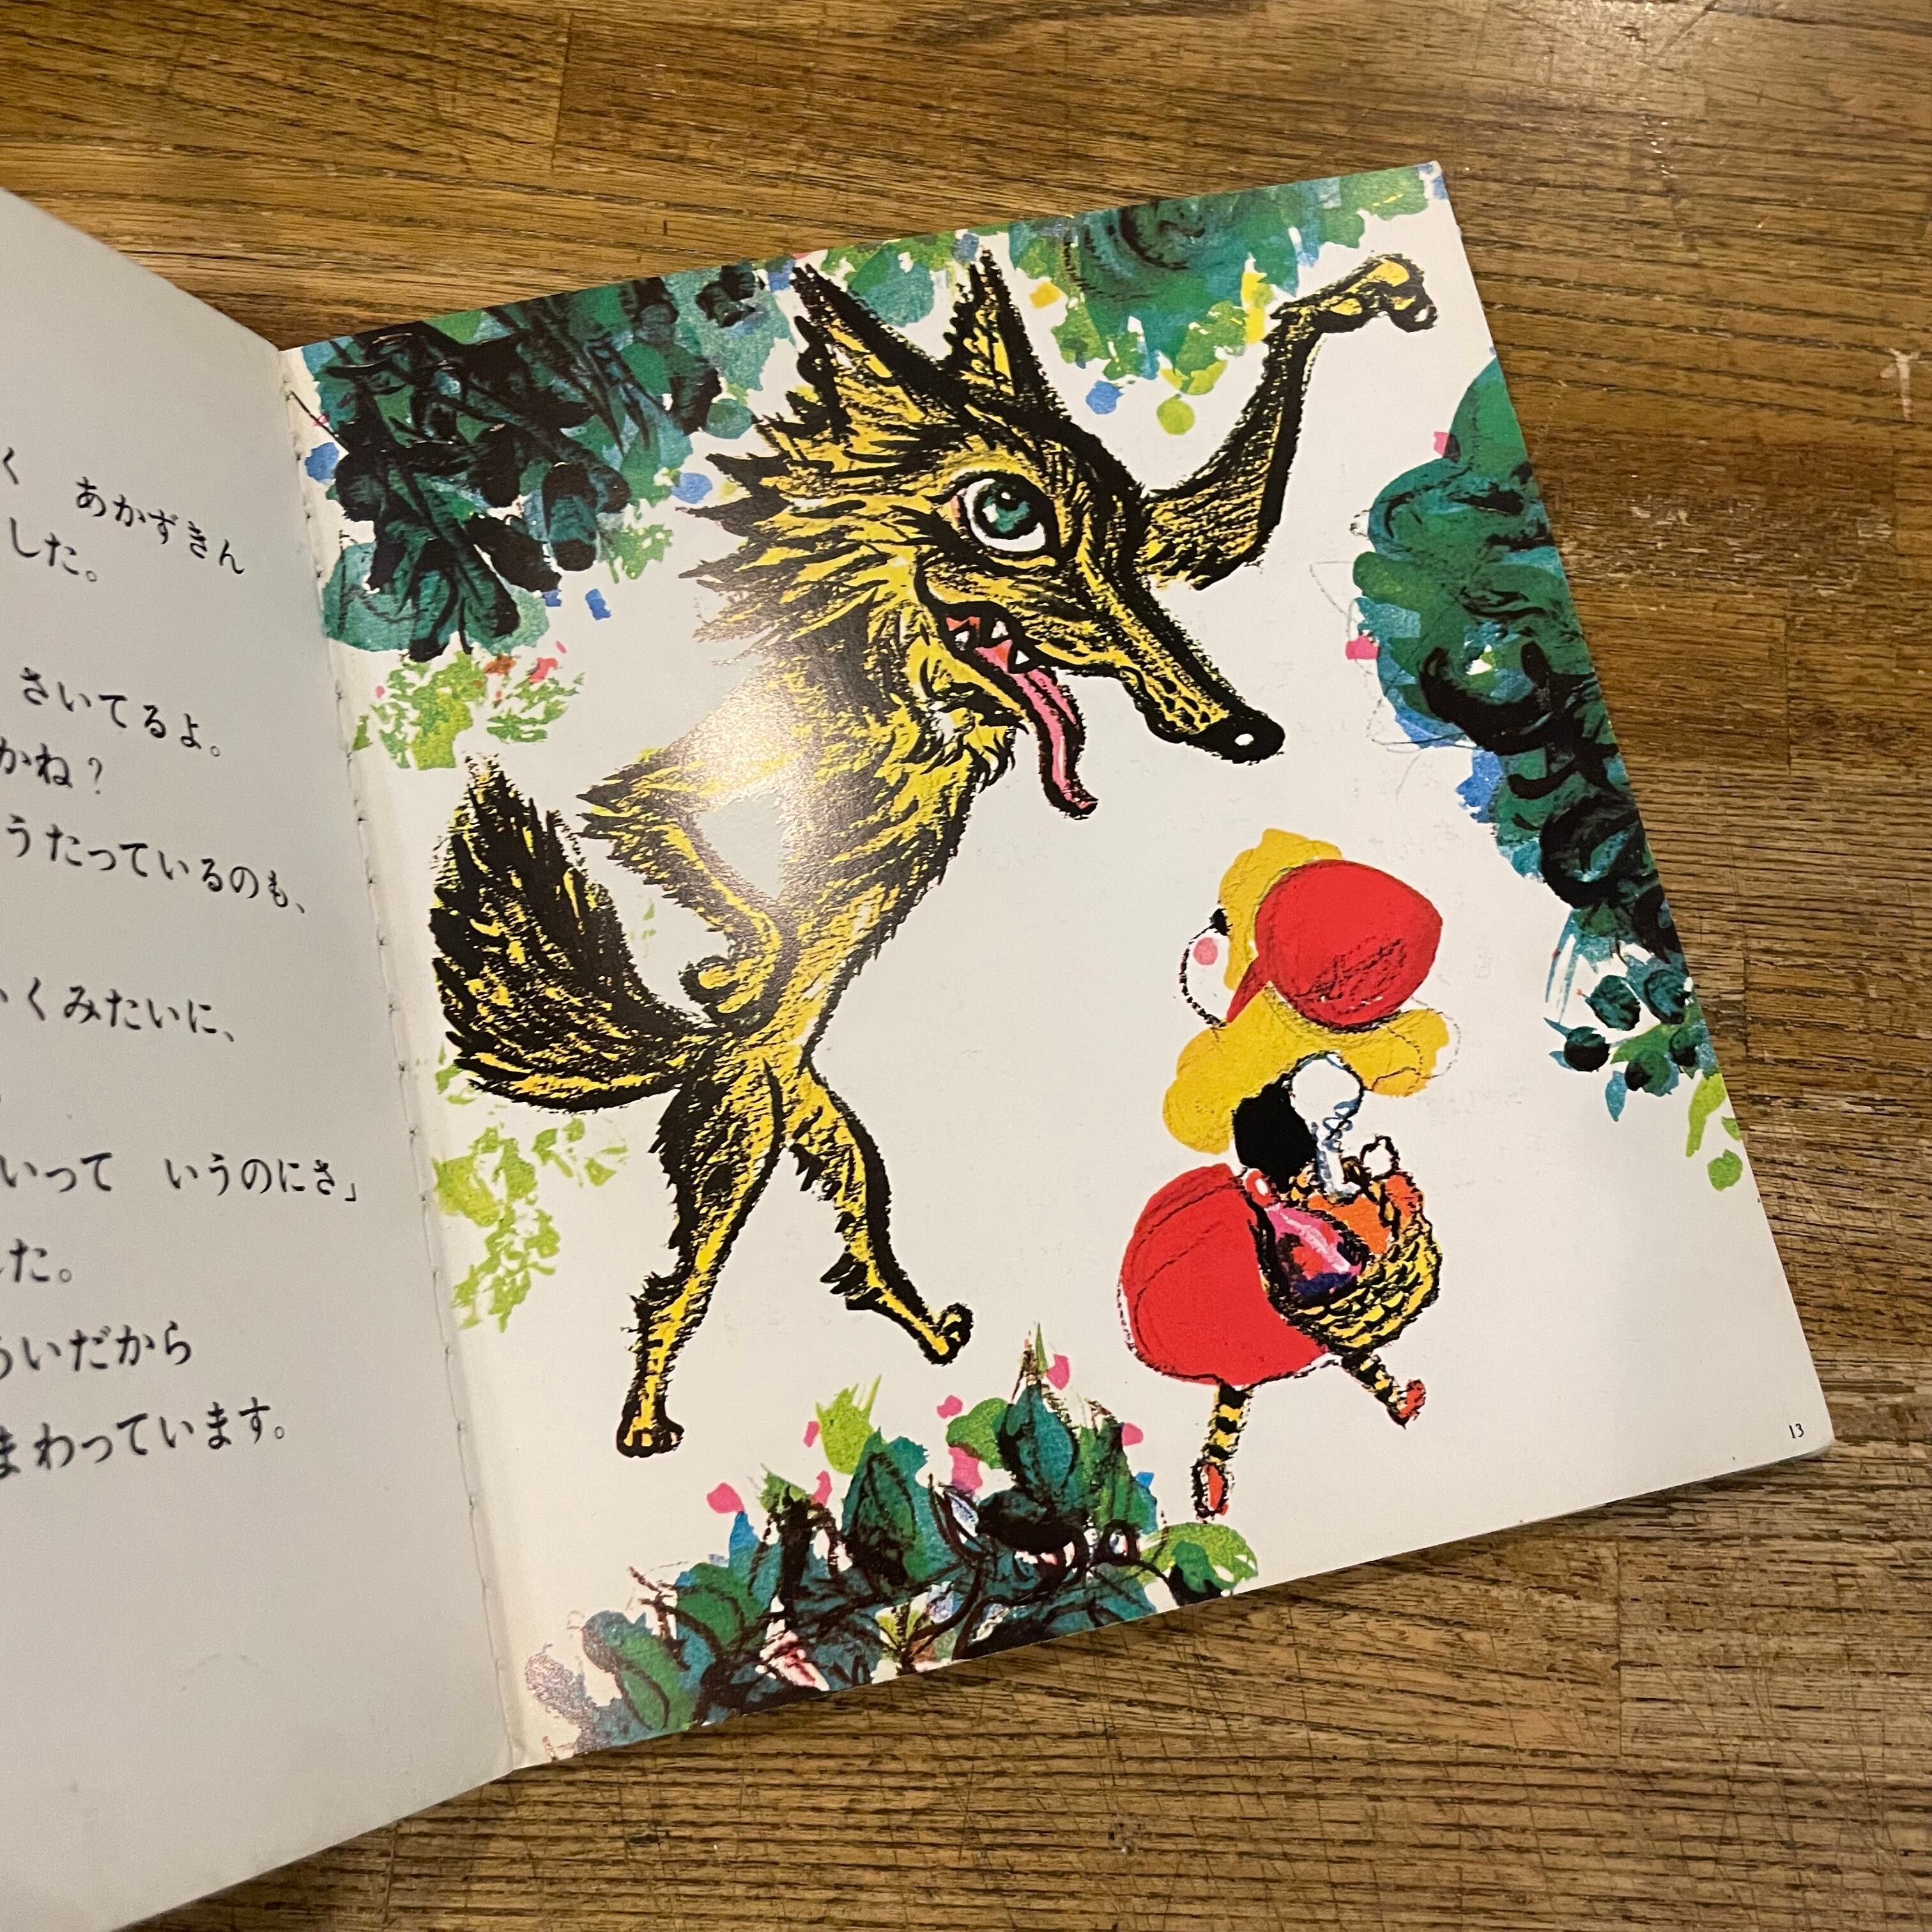 く　あかずきん
した。
さいてるよ。
かね？
うたっているのも、
くみたいに、
いって　いうのにさ」
た。
いだから
まわっています。
13